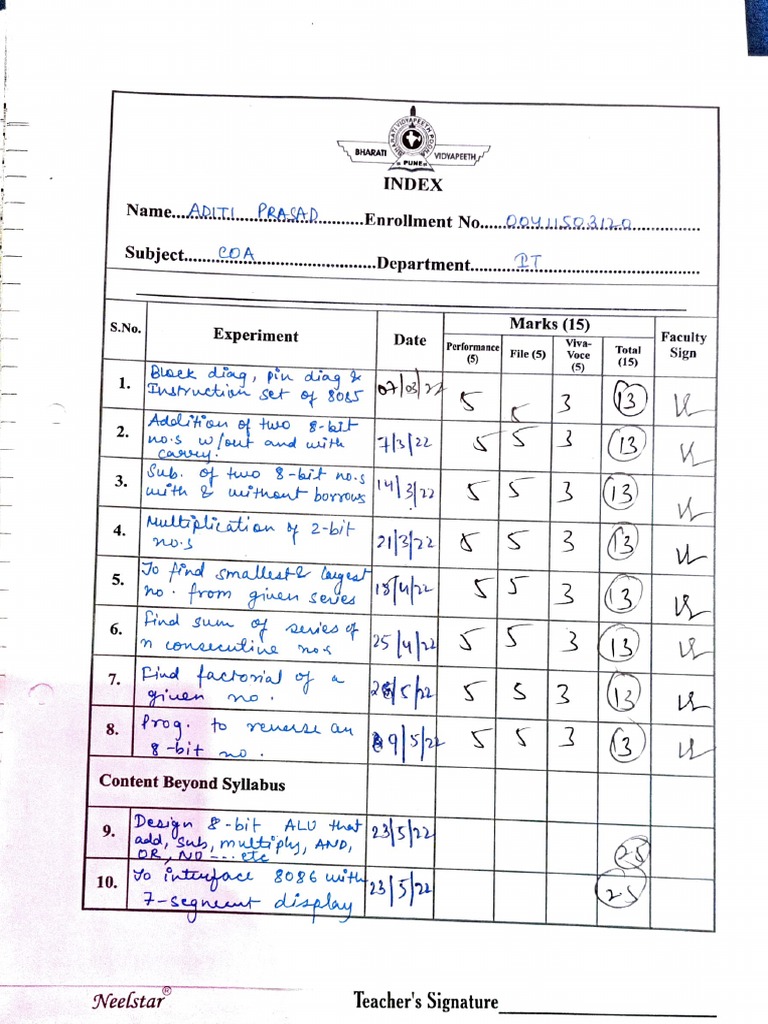 BHARATI VIDYAPEETH
PUNE
INDEX
Name...ADITI PRASAD...Enrollment No...00411503120
Subject...COA...Department...IT
S.No. Experiment Date Marks (15) Faculty Sign
Performance (5) File (5) Viva-Voce (5) Total (15)
1. Block diag, pin diag & 07/03/22 5 5 3 13
Instruction set of 8085
2. Addition of two 8-bit 7/3/22 5 5 3 13
no.s w/out and with
carry.
3. Sub. of two 8-bit no.s 14/3/22 5 5 3 13
with & without borrows
4. Multiplication of 2-bit 21/3/22 5 5 3 13
no.s
5. To find smallest & largest 18/4/22 5 5 3 13
no. from given series
6. Find sum of series of 25/4/22 5 5 3 13
n consecutive no.s
7. Find factorial of a 5 5 3 13
given no.
8. Prog. to reverse an 9/5/22 5 5 3 13
8-bit no.
Content Beyond Syllabus
9. Design 8-bit ALU that 23/5/22 25
add, sub, multiply, AND,
OR, NO --- etc
10. To interface 8086 with 23/5/22 25
7-segment display
Neelstar®
Teacher's Signature